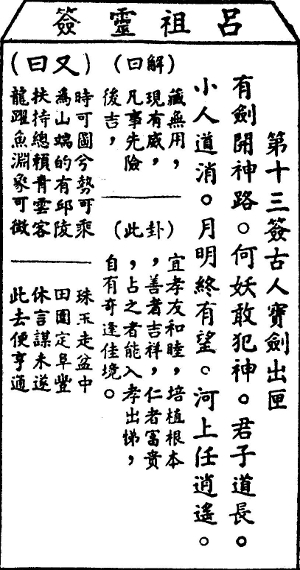 呂祖靈簽
第十三簽古人寶劍出匣
有劍開神路。何妖敢犯神。君子道長。
小人道消。月明終有望。河上任逍遙。
（解曰）
藏無用，
現有威，
凡事先險
後吉，
（此卦）
宜孝友和睦，培植根本
，善者吉祥，仁者富貴
，占之者能入孝出悌，
自有奇逢佳境。
（又曰）
時可圖兮勢可乘
為山端的有邱陵
扶持總賴青雲客
龍躍魚淵象可徵
珠玉走盆中
田園定阜豐
休言謀未遂
此去便亨通